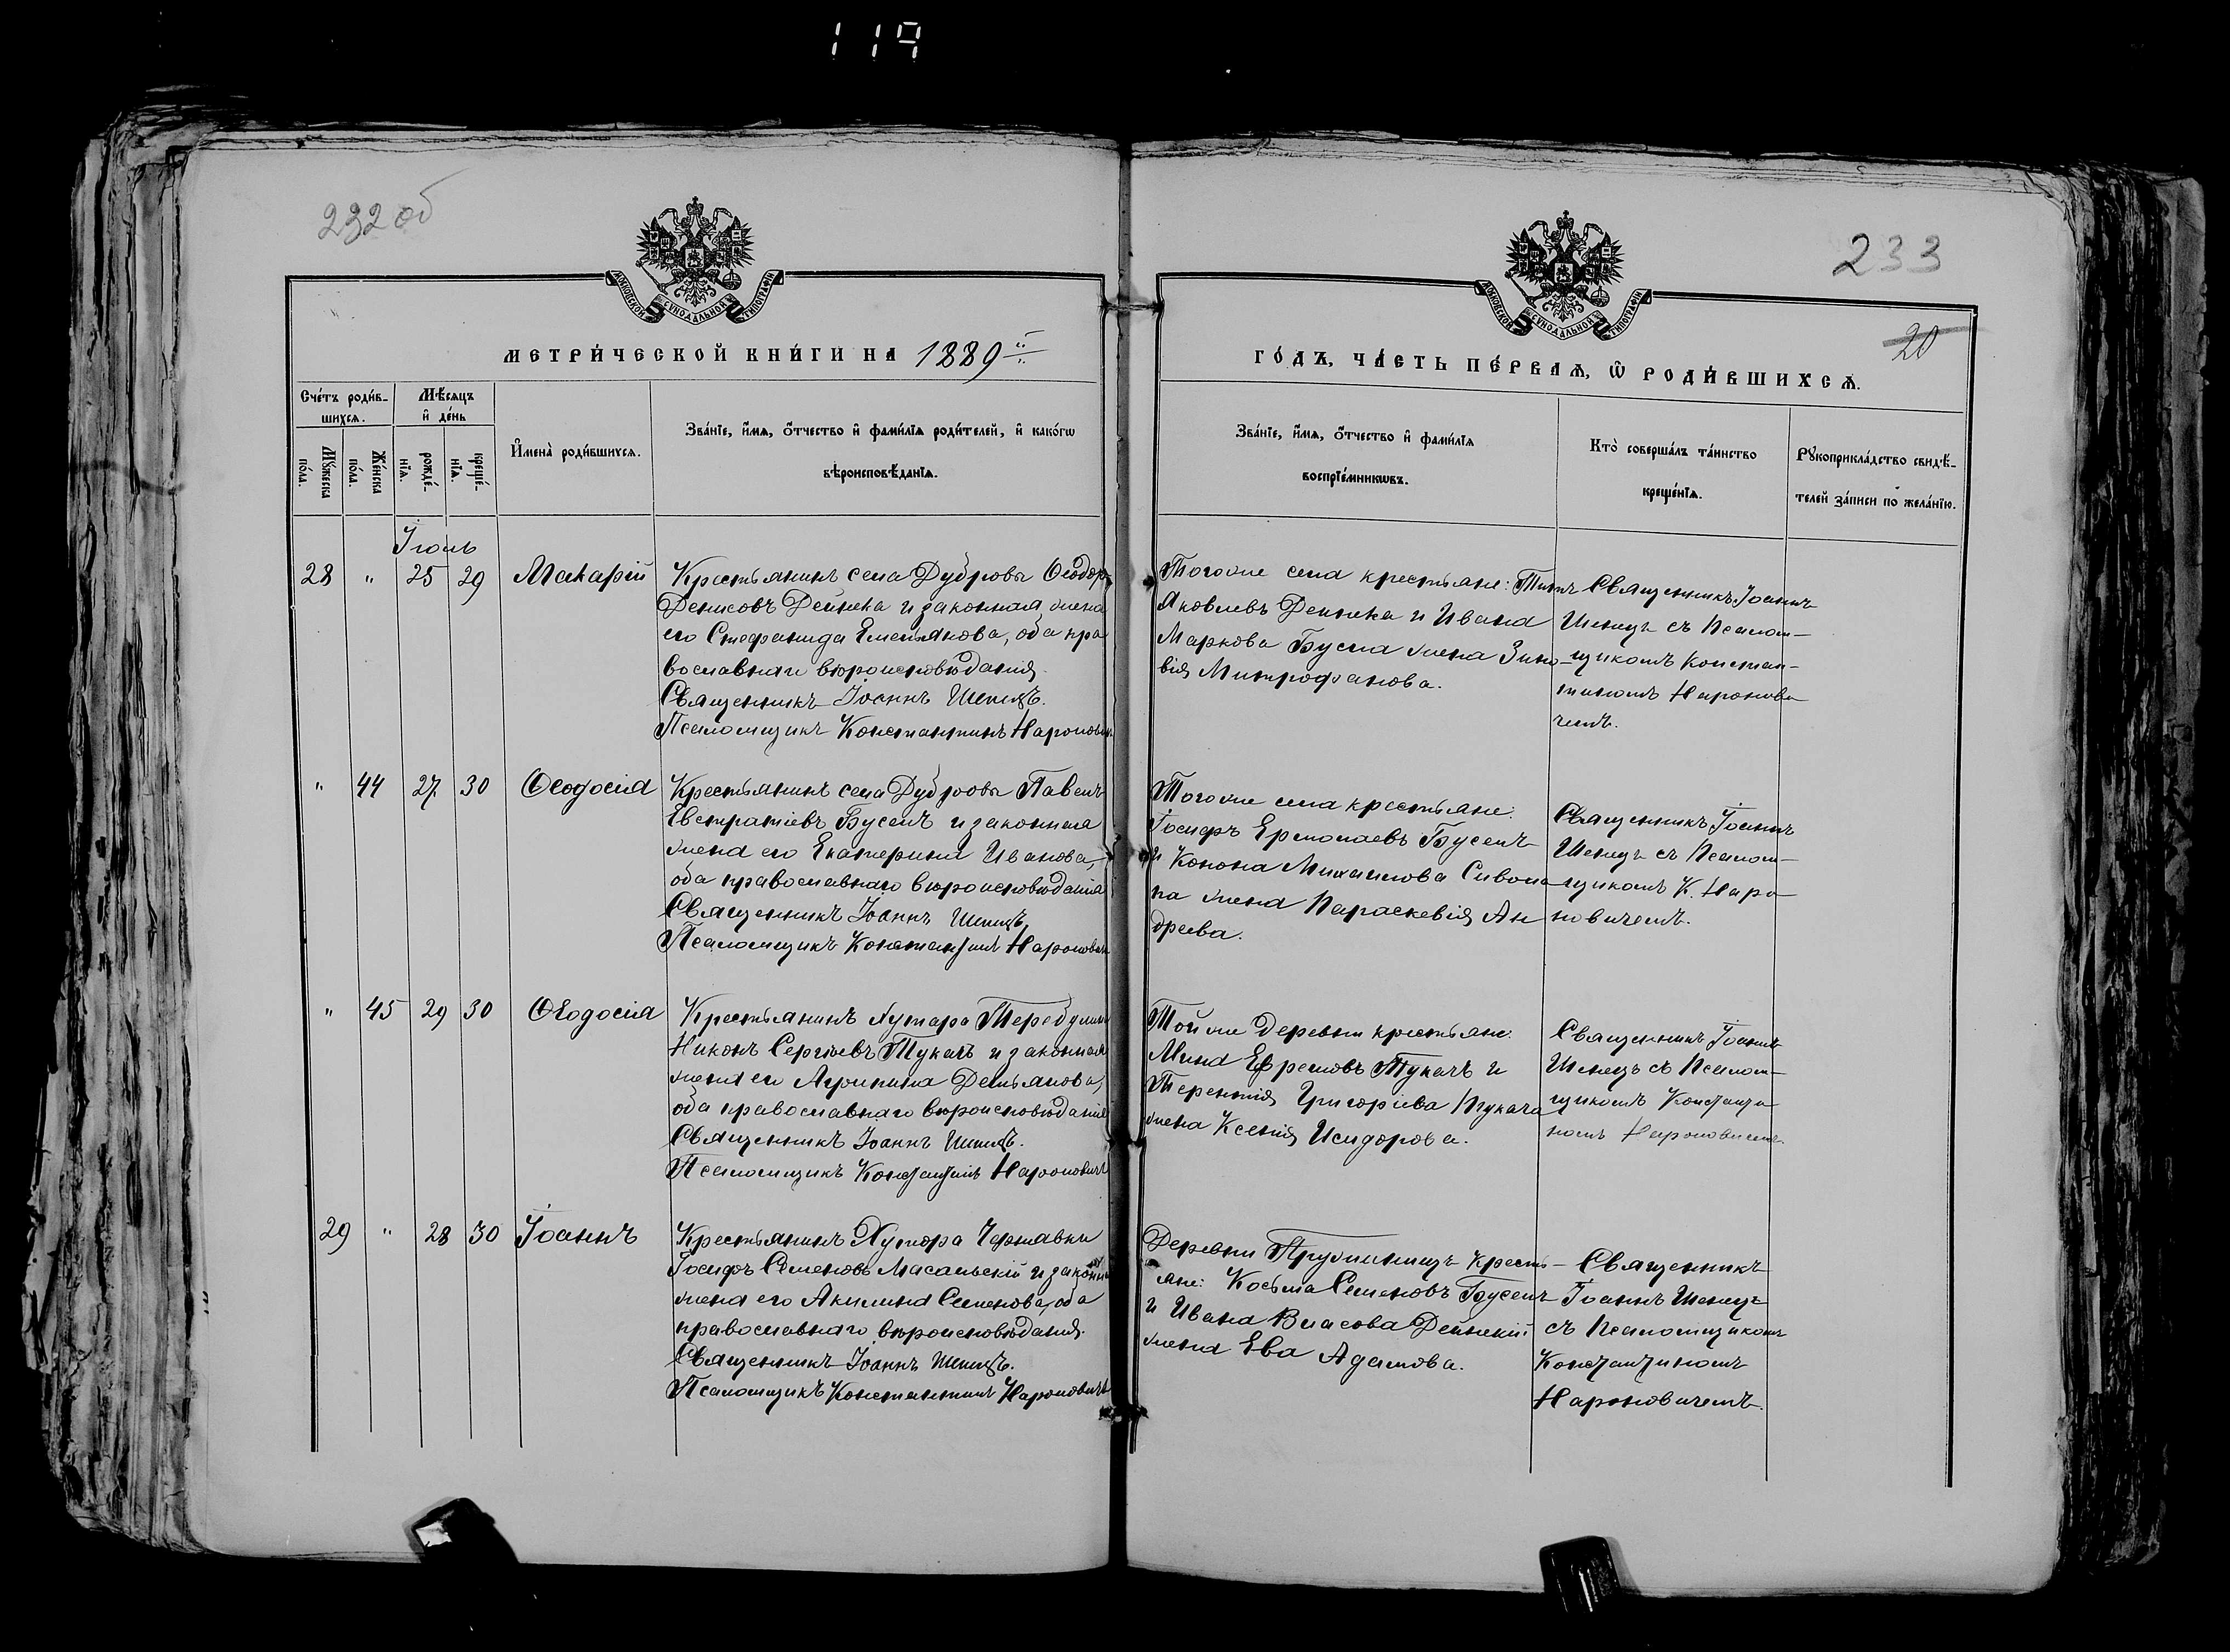 119
232 об
233
20
МОСКОВСКОЙ СѴНОДАЛЬНОЙ ТИПОГРАФІИ
МОСКОВСКОЙ СѴНОДАЛЬНОЙ ТИПОГРАФІИ
МЕТРИ́ЧЕСКОЙ КНИ́ГИ НА 1889 й
ГО́ДЪ, ЧА́СТЬ ПЕ́РВАѦ, Ѿ РОДИ́ВШИХСѦ.
Сче́тъ роди́в-
шихсѧ.
Мѣ́сѧцъ
и҆ де́нь
Мꙋ́жеска
по́ла.
Же́нска
по́ла.
рожде́-
нїѧ.
креще́-
нїѧ.
И҆мена̀ роди́вшихсѧ.
Зва́нїе, и҆́мѧ, ѻ҆́тчество и҆ фами́лїѧ роди́телей, и҆ како́гѡ
вѣроисповѣ́данїѧ.
Зва́нїе, и҆́мѧ, ѻ҆́тчество и҆ фами́лїѧ
воспрїе́мникѡвъ.
Кто̀ соверша́лъ та́инство
креще́нїѧ.
Рꙋкоприкла́дство свидѣ́-
телей за́писи по жела́нїю.
28 " 25 29 Макарій
Крестьянинъ села Дубровы Ѳеодоръ
Денисовъ Дейнека и законная жена
его Стефанида Емельянова, оба пра
вославнаго вѣроисповѣданія.
Священникъ Іоаннъ Шепецъ.
Псаломщикъ Константинъ Нароновичъ
Тогоже села крестьяне: Титъ
Яковлевъ Дейнека и Ивана
Маркова Бусла жена Зино-
вія Митрофанова.
Священникъ Іоаннъ
Шепецъ съ Псалом-
щикомъ Констан-
тиномъ Наронови
чемъ.
" 44 27 30 Ѳеодосіа
Крестьянинъ села Дубровы Павелъ
Евстратіевъ Буселъ и законная
жена его Екатерина Иванова,
оба православнаго вѣроисповѣданія
Священникъ Іоаннъ Шепецъ,
Псаломщикъ Константинъ Нароновичъ
Тогоже села крестьяне:
Іосифъ Ермолаевъ Буселъ
и Конона Михаилова
жена Параскевія Ан
дреева.
Священникъ Іоаннъ
Шепецъ съ Псалом-
щикомъ К. Наро-
новичемъ.
" 45 29 30 Ѳеодосіа
Крестьянинъ Хутара
Никонъ Сергіевъ Тукачъ и законная
жена его Агрипина Демьянова,
оба православнаго вѣроисповѣданія
Священникъ Іоаннъ Шепецъ.
Псаломщикъ Константинъ Нароновичъ
Той же деревни крестьяне:
Мина Ефремовъ Тукачъ и
Терентія Григоріева Тукача
жена Ксенія Исидорова.
Священникъ Іоаннъ
Шепецъ съ Псалом-
щикомъ Константи
номъ Нароновичемъ.
29 " 28 30 Іоаннъ
Крестьянинъ Хутора Чернавки
Іосифъ Семеновъ Масальскій и законная
жена его Акилина Семенова, оба
православнаго вѣроисповѣданія.
Священникъ Іоаннъ Шепецъ.
Псаломщикъ Константинъ Нароновичъ
Деревни Кресть-
яне: Косьма Семеновъ Буселъ
и Ивана Власова Дейнеки
жена Ева Адамова.
Священникъ
Іоаннъ Шепецъ
съ Псаломщикомъ
Константиномъ
Нароновичемъ.